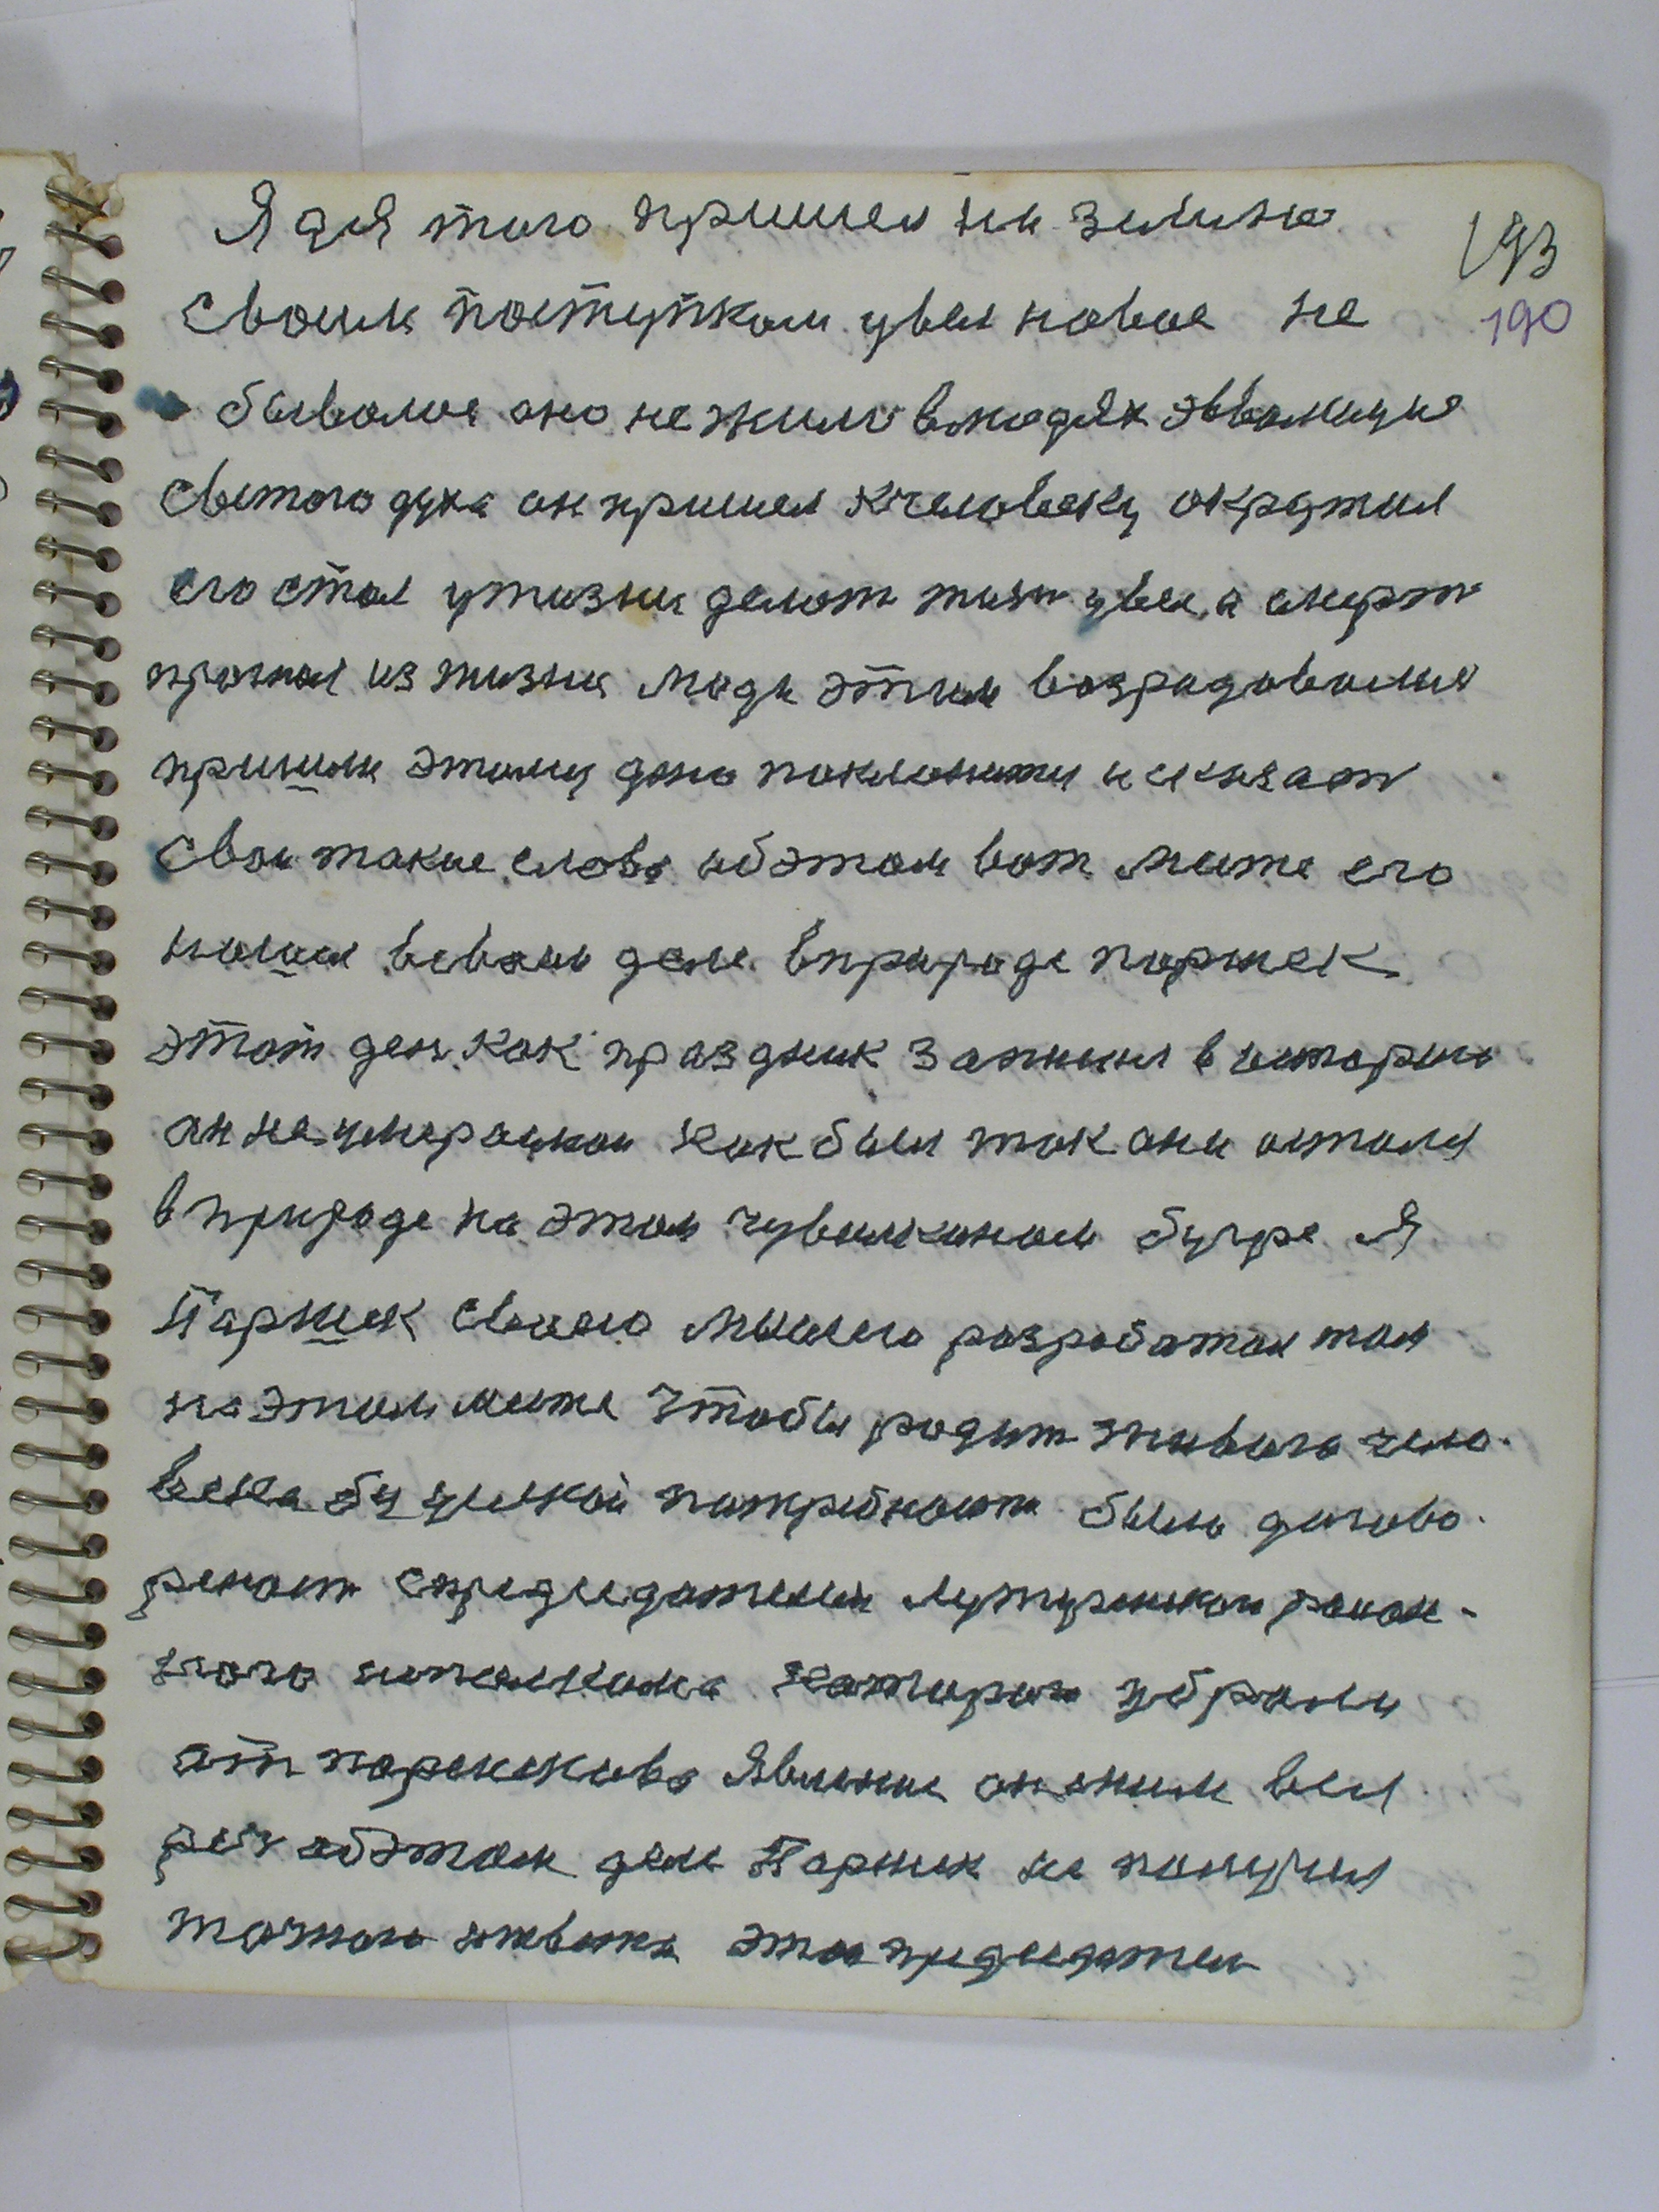 Я для того пришел на землю
193
своим поступком увел новое не
190
бывалое оно не жило в людях эвволицию
светого духа он пришел к человеку окружил
его стал у жизни делат жизн увел а смерт
прогнал из жизни люди этим возрадовалися
пришли этому дню поклонится и сказат
свои такие слова об этом вот месте его
нашел всвоем деле в природе паршек
этот ден как праздник запишил в историю
он не умерацкои как был так они остался
в природе на этом чувилкином бугре Я
Паршек своею мыслею розработал там
на этом месте чтобы родит живого чело-
века бу уснои потребност была догово-
реност спредседателем Лутугинскои раион-
ного исполкома которого убрали
от паршекова явление он с ним вел
реч об этом деле Паршек не получил
точного ответа этои председател